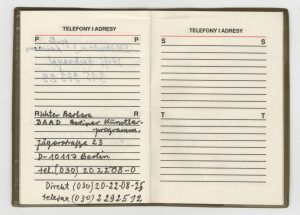 TELEFONY I ADRESY
P P
Richter Barbara
R R
DAAD Berliner Künstler-
programm.
Jägerstraße 23
D-10117 Berlin
tel. (030) 202208-0
Direkt (030) 20-22-08-25
telefax (030) 2292512
TELEFONY I ADRESY
S S
T T